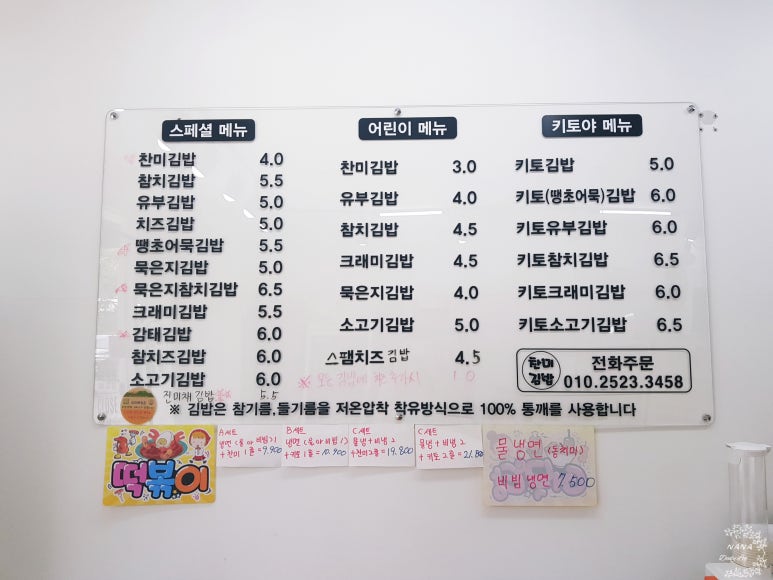 스페셜 메뉴
찬미김밥 4.0
참치김밥 5.5
유부김밥 5.0
치즈김밥 5.0
땡초어묵김밥 5.5
묵은지김밥 5.0
묵은지참치김밥 6.5
크래미김밥 5.5
감태김밥 6.0
참치즈김밥 6.0
소고기김밥 6.0
진미채 김밥 5.5
어린이 메뉴
찬미김밥 3.0
유부김밥 4.0
참치김밥 4.5
크래미김밥 4.5
묵은지김밥 4.0
소고기김밥 5.0
스팸치즈 김밥 4.5
1.0
키토야 메뉴
키토김밥 5.0
키토(땡초어묵)김밥 6.0
키토유부김밥 6.0
키토참치김밥 6.5
키토크래미김밥 6.0
키토소고기김밥 6.5
찬미김밥
전화주문
010.2523.3458
※ 김밥은 참기름,들기름을 저온압착 착유방식으로 100% 통깨를 사용합니다
떡볶이
A세트
냉면(물 or 비빔)
+찬미 1줄=9.900
B세트
냉면(물 or 비빔)
+키토 1줄=10.900
C세트
물냉+비냉 2
+찬미2줄=19.800
C세트
물냉+비냉 2
+키토 2줄=21.800
물냉면(동치미)
비빔냉면 7.500
NANA